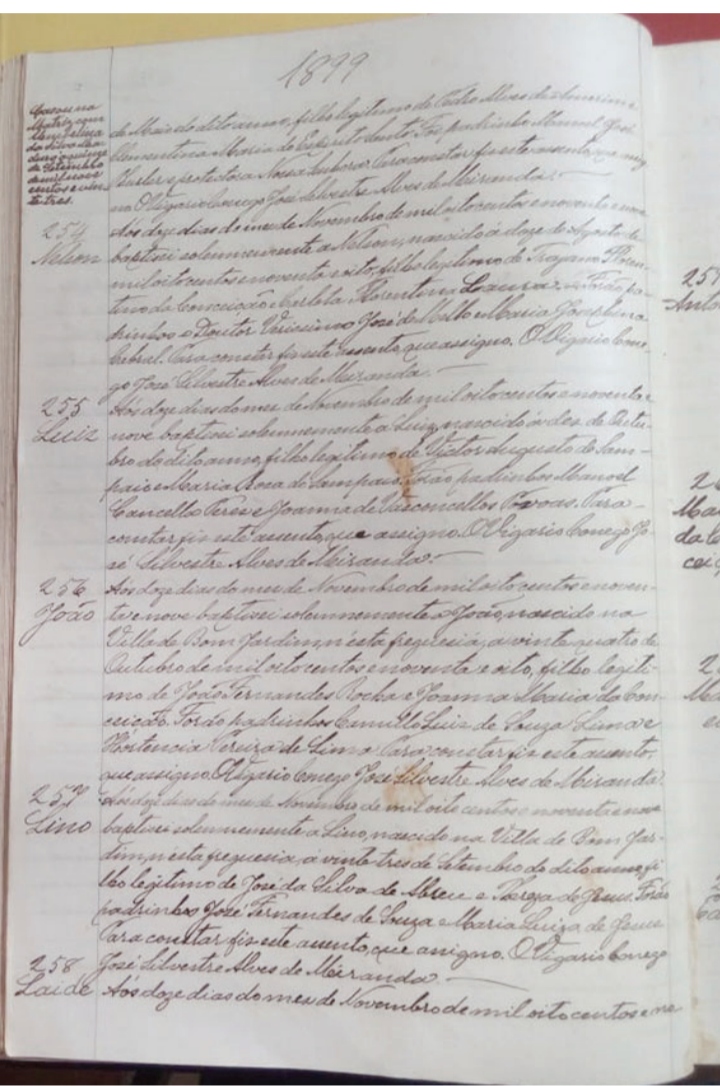 1899
Casou na
Matriz com
da Silva
de Setembro
de mil nove
centos e vin
te tres.
de Maio do dito anno, filho legitimo de Pedro Alves de
Clementina Maria do Espirito Santo. Foi padrinho Manoel José
e protectora Nossa Senhora. Para constar fiz este assento, que assig
no. O Vigario Conego José Silvestre Alves de Miranda.
254
Nelson
Aos doze dias do mez de Novembro de mil oito centos e noventa e nove
baptisei solemnemente a Nelson, nascido á doze de Agosto de
mil oito centos e noventa e oito, filho legitimo de Trajano Floren-
tino da Conceição e Carlota Florentina Laura. Forão pa-
drinhos o Doutor Verissimo José de Mello e Maria Josephina
Cabral. Para constar fiz este assento, que assigno. O Vigario Cone-
go José Silvestre Alves de Miranda.
255
Luiz
Aos doze dias do mez de Novembro de mil oito centos e noventa e
nove baptisei solemnemente a Luiz, nascido á dez de Outu-
bro do dito anno, filho legitimo de Victor Augusto de Sam-
paio e Maria Rosa de Sampaio. Forão padrinhos Manoel
Cancella Peres e Joanna de Vasconcellos Povoas. Para
constar fiz este assento, que assigno. O Vigario Conego Jo-
sé Silvestre Alves de Miranda.
256
João
Aos doze dias do mez de Novembro de mil oito centos e noven-
ta e nove baptisei solemnemente a João, nascido na
Villa de Bom Jardim, n'esta freguesia, a vinte quatro de
Outubro de mil oito centos e noventa e oito, filho legiti-
mo de João Fernandes Rocha e Joanna Maria da Con-
ceição. Forão padrinhos Camillo Luiz de Souza Lima e
Hortencia Pereira de Lima. Para constar fiz este assento,
que assigno. O Vigario Conego José Silvestre Alves de Miranda.
257
Lino
Aos doze dias do mez de Novembro de mil oito centos e noventa e nove
baptisei solemnemente a Lino, nascido na Villa de Bom Jar-
dim, n'esta freguesia, á vinte tres de Setembro do dito anno, fi-
lho legitimo de José da Silva de Abreu e Thereza de Jesus. Forão
padrinhos José Fernandes de Souza e Maria Luiza de Jesus
Para constar fiz este assento, que assigno. O Vigario Conego
José Silvestre Alves de Miranda.
258
Laide
Aos doze dias do mez de Novembro de mil oito centos e no